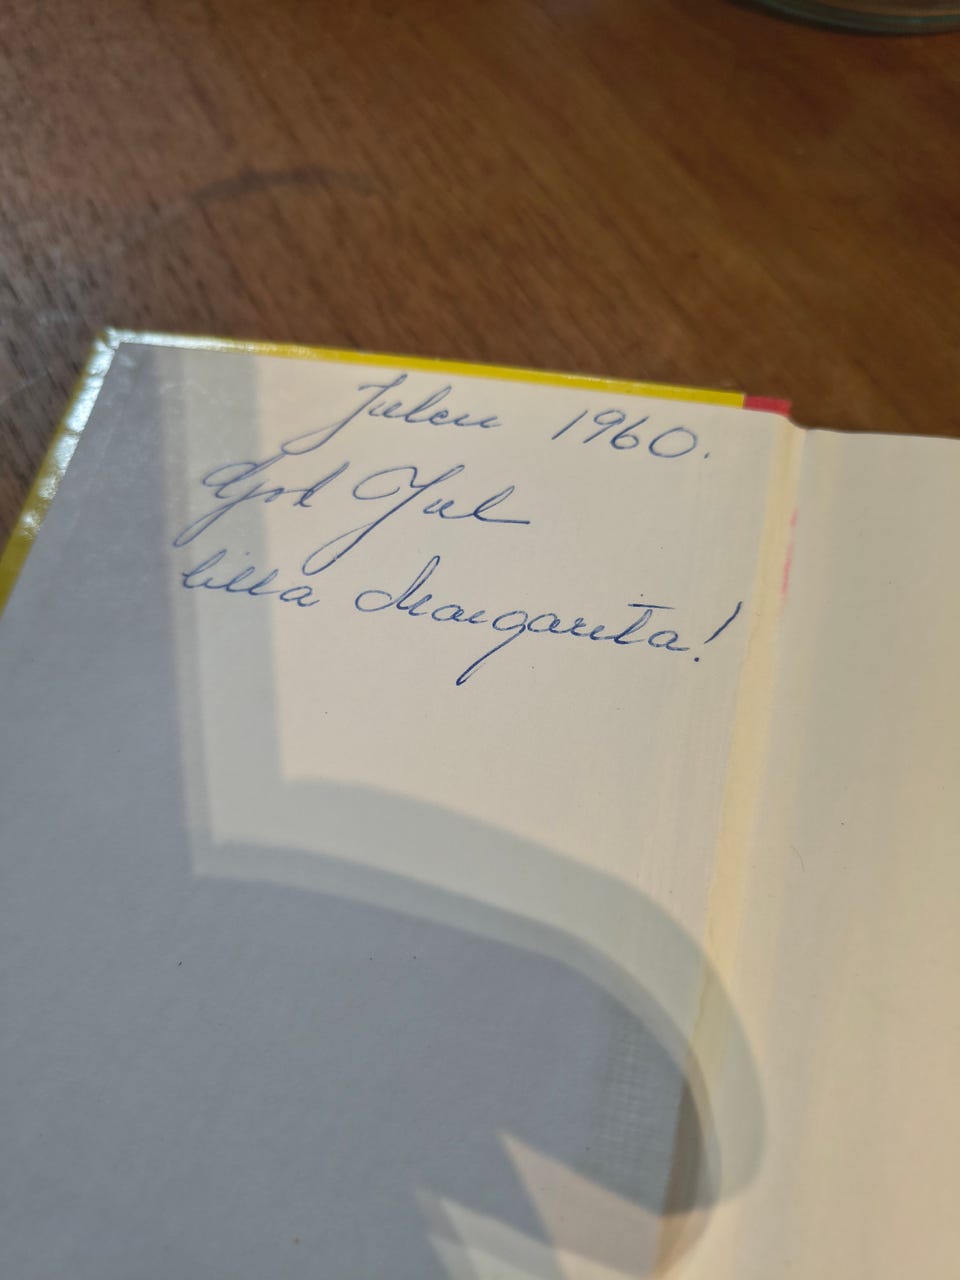 Julen 1960.
God Jul
lilla Margareta!